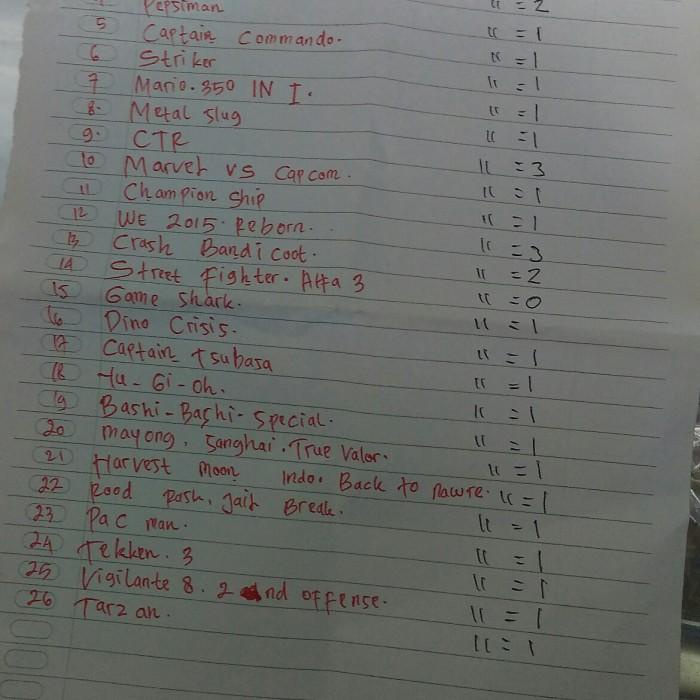 Pepsiman " = 2
5 Captain Commando. " = 1
6 Striker " = 1
7 Mario. 350 IN I. " = 1
8. Metal Slug " = 1
9. CTR " = 1
10 Marvel vs Capcom. " = 3
11 Champion ship " = 1
12 WE 2015. Reborn. " = 1
13 Crash Bandi coot. " = 3
14 Street Fighter. Alfa 3 " = 2
15 Game Shark. " = 0
16 Dino Crisis. " = 1
17 Captain Tsubasa " = 1
18 Yu-Gi-Oh. " = 1
19 Bashi-Bashi-Special. " = 1
20 mayong, Sanghai. True Valor. " = 1
21 Harvest moon Indo. Back to nawre. " = 1
22 Rood Rash, Jail Break. " = 1
23 Pac man. " = 1
24 Tekken. 3 " = 1
25 Vigilante 8. 2 nd offense. " = 1
26 Tarzan. " = 1
" = 1